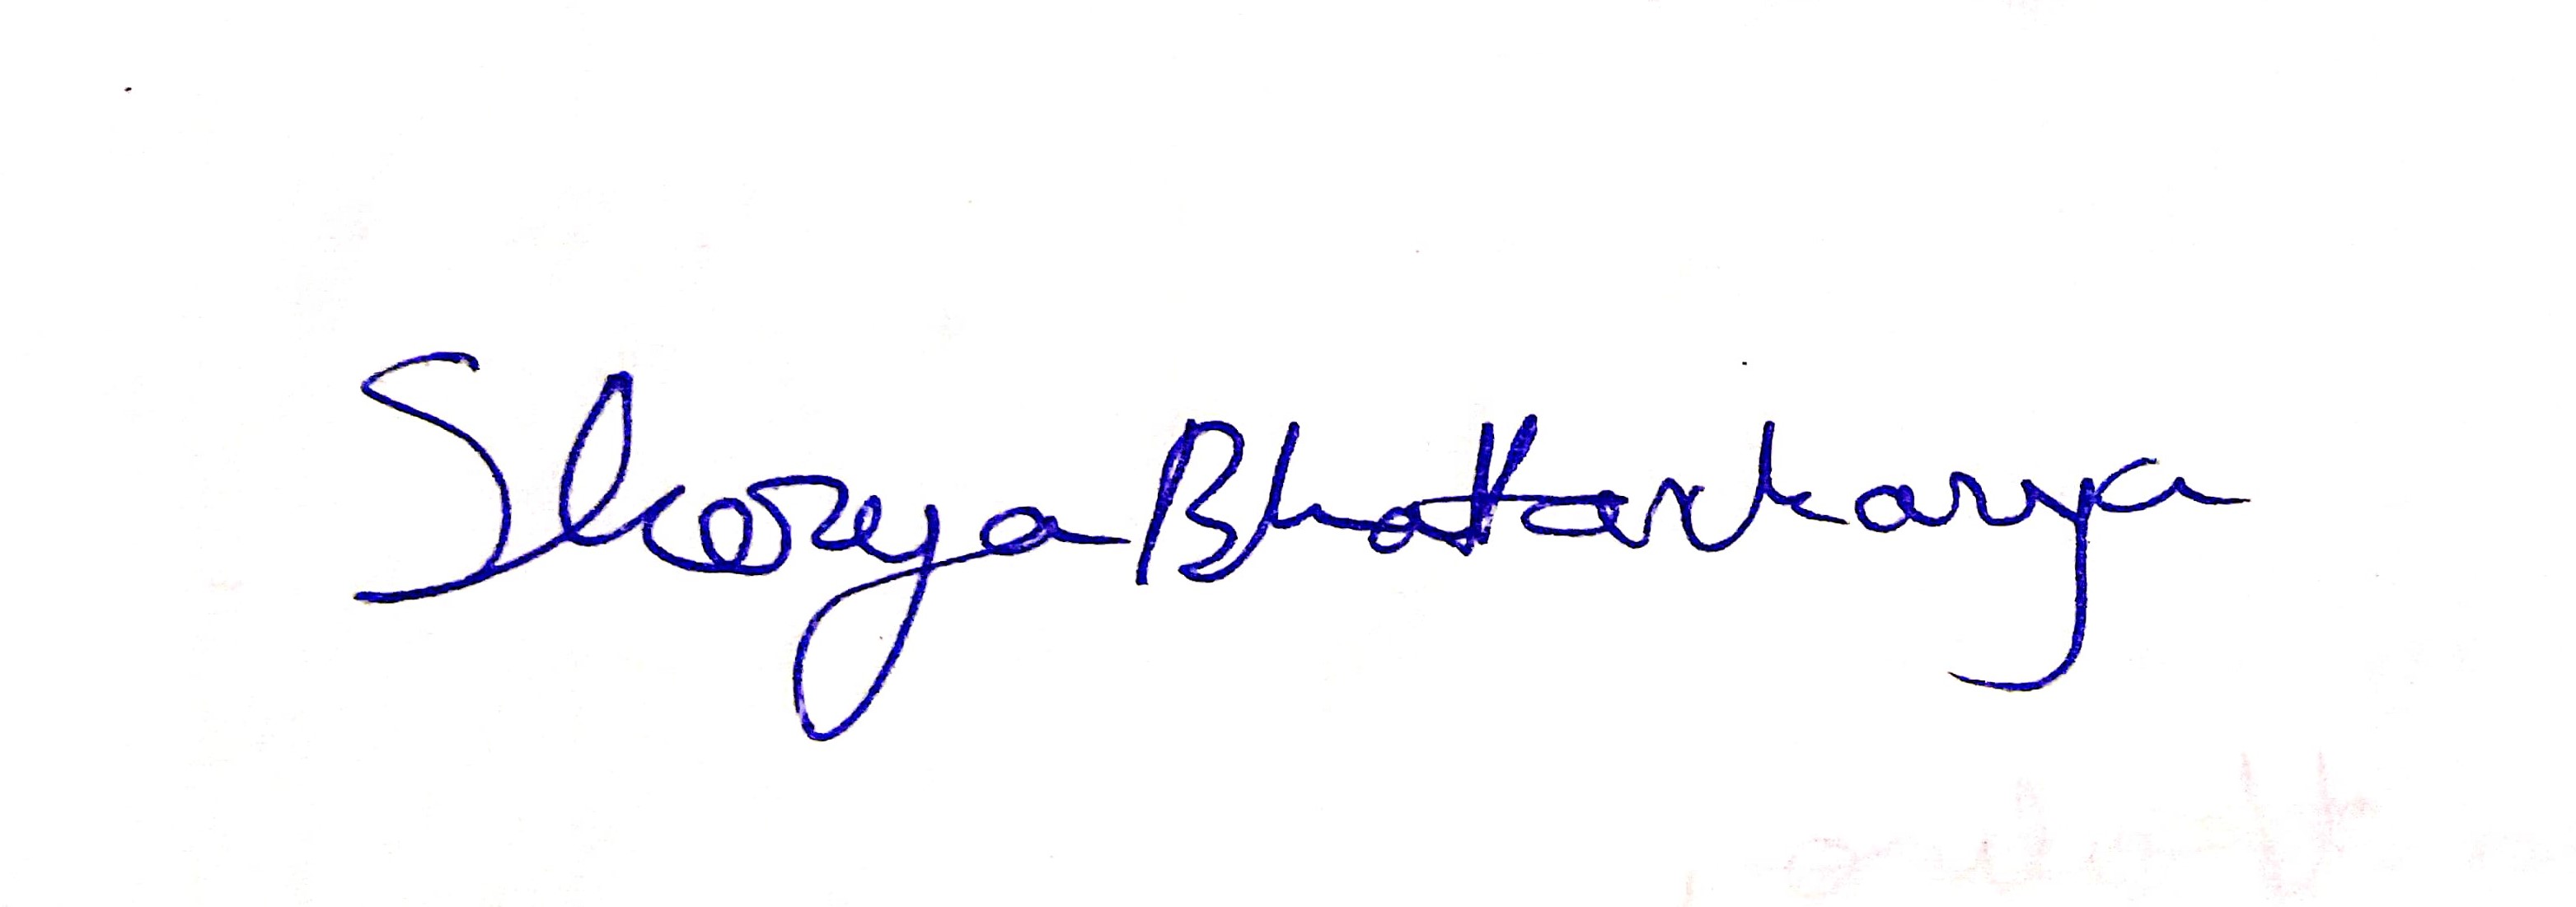 Shorya Bhattacharya